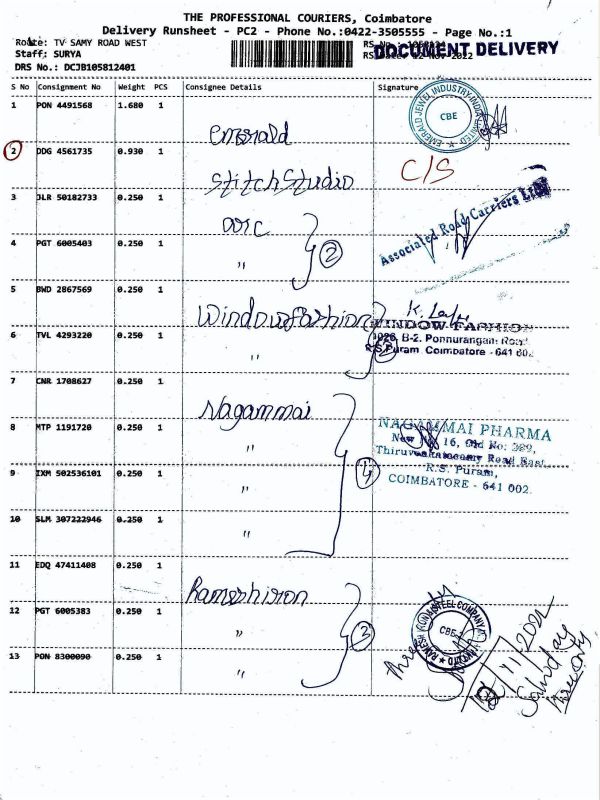 THE PROFESSIONAL COURIERS, Coimbatore
Delivery Runsheet - PC2 - Phone No.:0422-3505555 - Page No.:1
Route: TV SAMY ROAD WEST
Staff: SURYA
DRS No.: DCJB105812401
DOCUMENT DELIVERY
S No Consignment No Weight PCS Consignee Details Signature
1 PON 4491568 1.680 1 Emerald
EMERALD JEWEL INDUSTRY INDIA LIMITED CBE
2 DDG 4561735 0.930 1 StitchStudio C/S
3 JLR 50182733 0.250 1 oorc
4 PGT 6005403 0.250 1 " 2
Associated Road Carriers Ltd
5 BWD 2867569 0.250 1 Windowfashion
6 TVL 4293220 0.250 1 " 2
WINDOW FASHION
1026, B-2, Ponnurangam Road
R.S Puram Coimbatore - 641 002
7 CNR 1708627 0.250 1 Nagammai
8 MTP 1191720 0.250 1 "
9 IXM 502536101 0.250 1 " 4
10 SLM 307222946 0.250 1 "
NAGAMMAI PHARMA
New No 16, Old No:
Thiruvenkatasamy Road East,
R.S. Puram,
COIMBATORE - 641 002.
11 EDQ 47411408 0.250 1 Rameshiron
12 PGT 6005383 0.250 1 " 3
13 PON 8300090 0.250 1 "
STEEL COMPANY